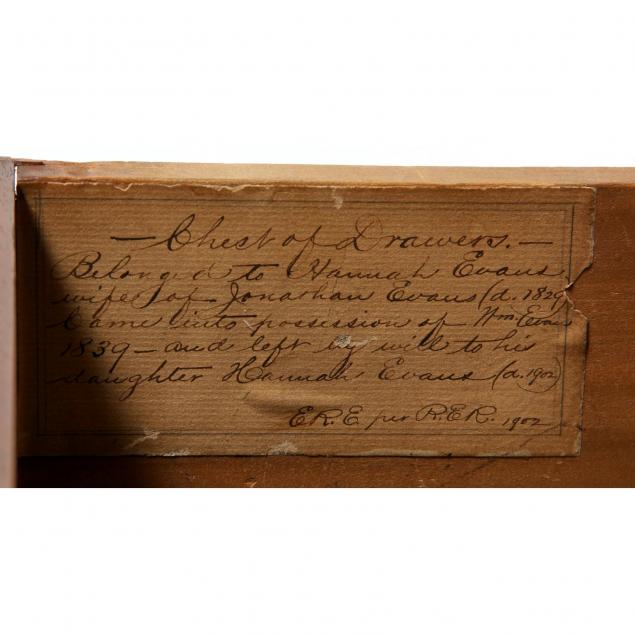 — Chest of Drawers. —
Belonged to Hannah Evans,
wife of Jonathan Evans (d. 1829
Came into possession of Wm. Evans
1839 — and left by will to his
daughter Hannah Evans (d. 1902)
E.R.E. per R.E.R. 1902